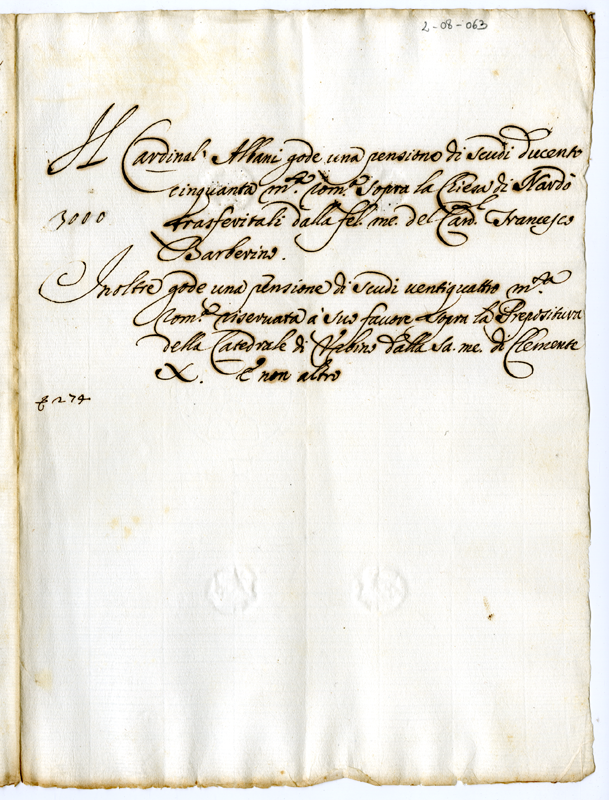 2-08-063
Il Cardinal' Albani gode una pensione di scudi ducento
cinquanta m.ta Rom.a sopra la Chiesa di Nardò
3000 trasferitali dalla fel. me. del Card.l Francesco
Barberino.
Inoltre gode una pensione di scudi uentiquattro m.ta
Rom.a riseruata à suo fauore sopra la Prepositura
della Catedrale di Vrbino dalla sa. me. di Clemente
X. E non altro
274